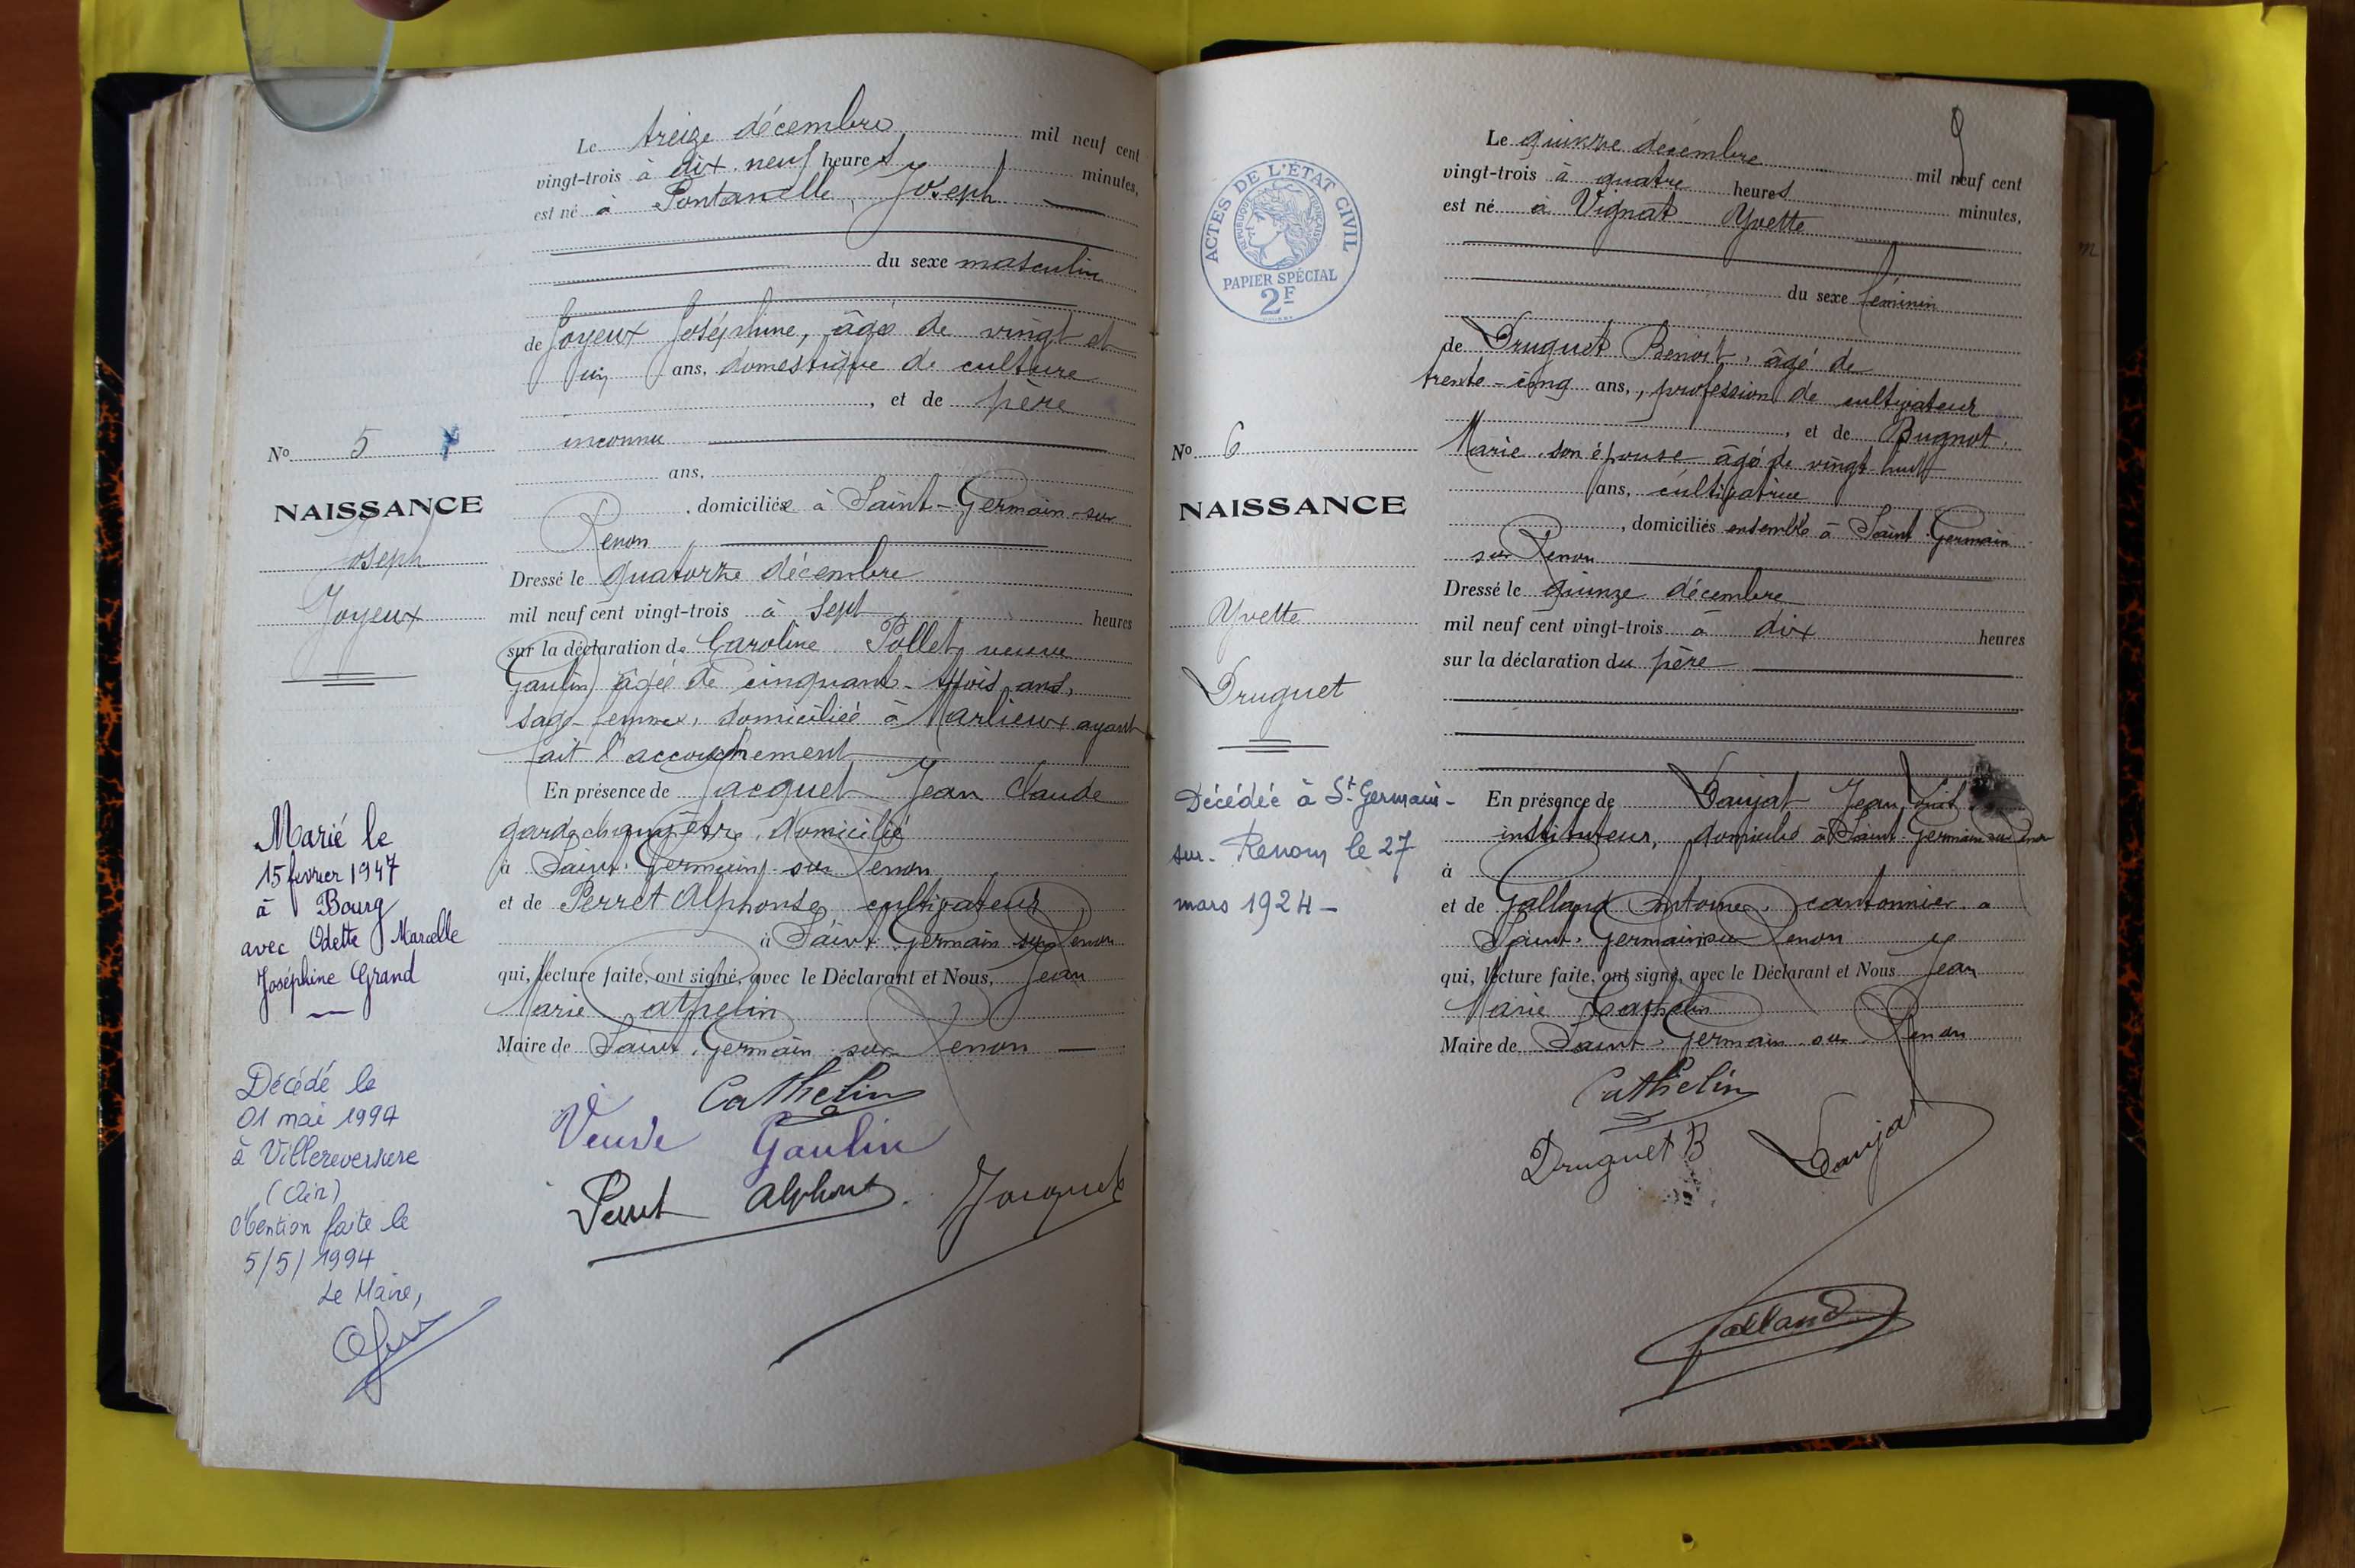 Le treize décembre mil neuf cent
vingt-trois à dix neuf heures minutes,
est né à Fontanelle, Joseph
du sexe masculin
de Joyeux Joséphine, âgée de vingt et
un ans, domestique de culture
, et de père
inconnu
ans,
, domiciliée à Saint-Germain-sur
Renon
Dressé le quatorze décembre
mil neuf cent vingt-trois à sept heures
sur la déclaration de Caroline Pollet veuve
Gaulin âgée de cinquante-trois ans,
sage-femme, domiciliée à Marlieux ayant
fait l'accouchement
En présence de Jacquet Jean Claude
garde champêtre, domicilié
à Saint-Germain sur Renon
et de Perret Alphonse, cultivateur
à Saint-Germain sur Renon
qui, lecture faite, ont signé, avec le Déclarant et Nous, Jean
Marie Cathelin
Maire de Saint-Germain sur Renon
Cathelin
Veuve Gaulin
Perret Alphonse
Jacquet
No 5
NAISSANCE
Joseph
Joyeux
Marié le
15 février 1947
à Bourg
avec Odette Marcelle
Joséphine Grand
Décédé le
01 mai 1994
à Villereversure
(Ain)
Mention faite le
5/5/1994
Le Maire,
9
ACTES DE L'ÉTAT CIVIL
RÉPUBLIQUE FRANÇAISE
PAPIER SPÉCIAL
2F
Le quinze décembre mil neuf cent
vingt-trois à quatre heures minutes,
est né à Vignat Yvette
du sexe féminin
de Druguet Benoit, âgé de
trente-cinq ans, profession de cultivateur
, et de Bugnot,
Marie, son épouse âgée de vingt huit
ans, cultivatrice
, domiciliés ensemble à Saint Germain
sur Renon
Dressé le quinze décembre
mil neuf cent vingt-trois à dix heures
sur la déclaration du père
En présence de Daujat Jean
instituteur, domicilié à Saint-Germain sur Renon
à
et de Galland Antoine, cantonnier à
Saint-Germain sur Renon
qui, lecture faite, ont signé, avec le Déclarant et Nous Jean
Marie Cathelin
Maire de Saint-Germain sur Renon
Cathelin
Druguet B
Daujat
Galland
No 6
NAISSANCE
Yvette
Druguet
Décédée à St. Germain-
sur-Renon le 27
mars 1924-